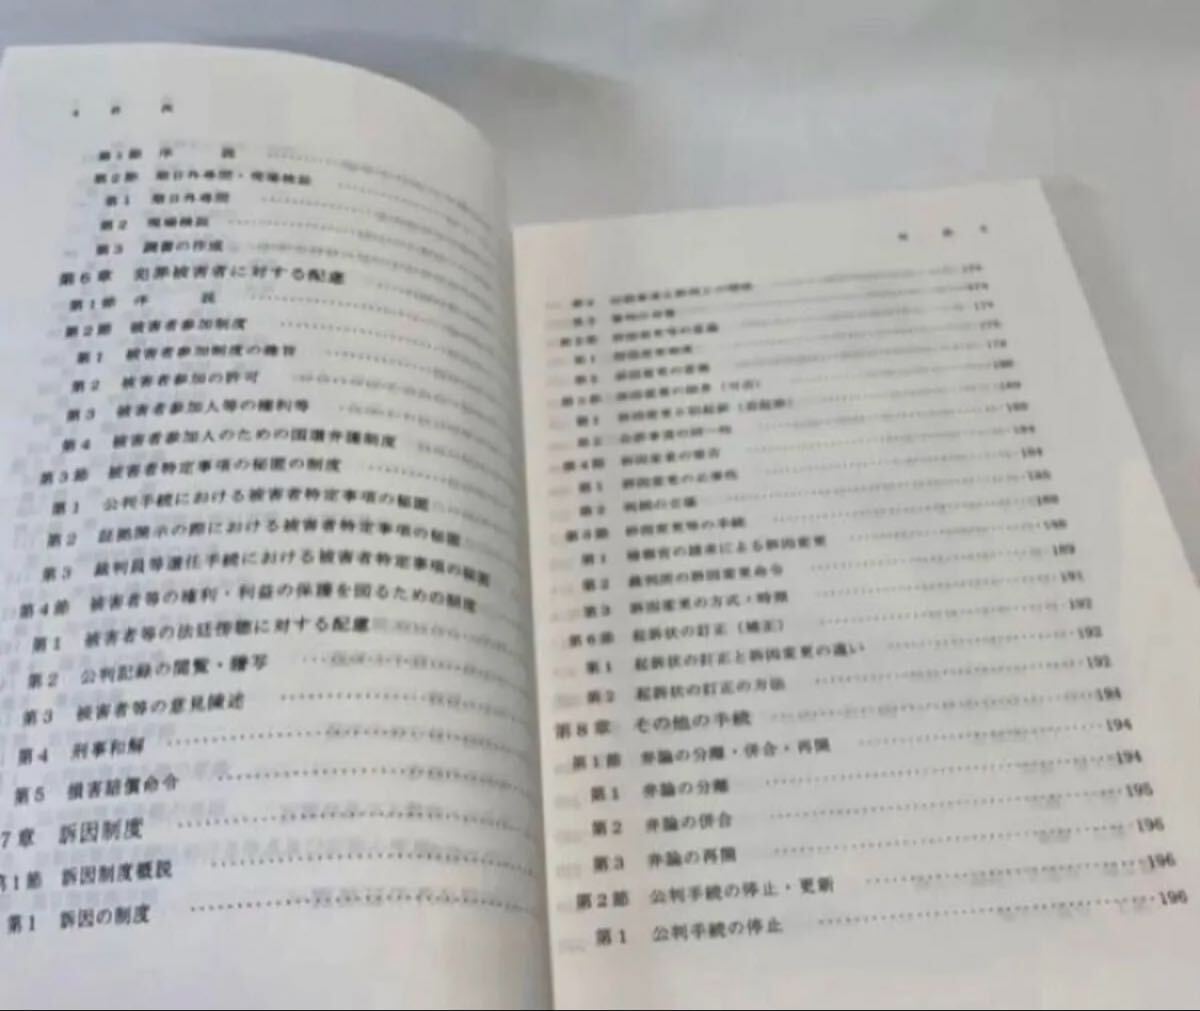 第1節 序 説
第2節 期日外尋問・現場検証
第1 期日外尋問
第2 現場検証
第3 調書の作成
第6章 犯罪被害者に対する配慮
第1節 序 説
第2節 被害者参加制度
第1 被害者参加制度の趣旨
第2 被害者参加の許可
第3 被害者参加人等の権利等
第4 被害者参加人のための国選弁護制度
第3節 被害者特定事項の秘匿の制度
第1 公判手続における被害者特定事項の秘匿
第2 証拠開示の際における被害者特定事項の秘匿
第3 裁判員等選任手続における被害者特定事項の秘匿
第4節 被害者等の権利・利益の保護を図るための制度
第1 被害者等の法廷傍聴に対する配慮
第2 公判記録の閲覧・謄写
第3 被害者等の意見陳述
第4 刑事和解
第5 損害賠償命令
7章 訴因制度
第1節 訴因制度概説
第1 訴因の制度
第1 訴因変更制度
第2 訴因変更の意義
第4節 訴因変更の要否
第1 訴因変更の必要性
第5節 訴因変更等の手続 188
第1 検察官の請求による訴因変更 188
第2 裁判所の訴因変更命令 189
第3 訴因変更の方式・時期 191
第6節 起訴状の訂正(補正) 192
第1 起訴状の訂正と訴因変更の違い 192
第2 起訴状の訂正の方法 192
第8章 その他の手続 194
第1節 弁論の分離・併合・再開 194
第1 弁論の分離 194
第2 弁論の併合 195
第3 弁論の再開 196
第2節 公判手続の停止・更新 196
第1 公判手続の停止 196